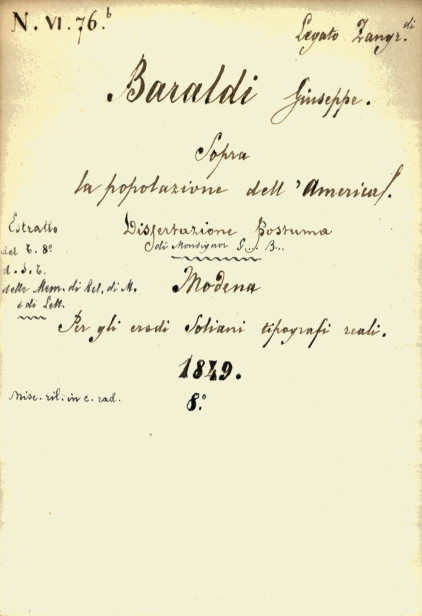 N. VI. 76.b
Legato Zangr.di
Baraldi Giuseppe.
Sopra
la popolazione dell'America.
Dissertazione Postuma
di Monsignor G... B...
Estratto
del T. 8º
d. S. T.
delle Mem. di Rel. di M.
e di Lett.
Modena
Per gli eredi Soliani tipografi reali.
1849.
8.º
Misc. ril. in c. rad.